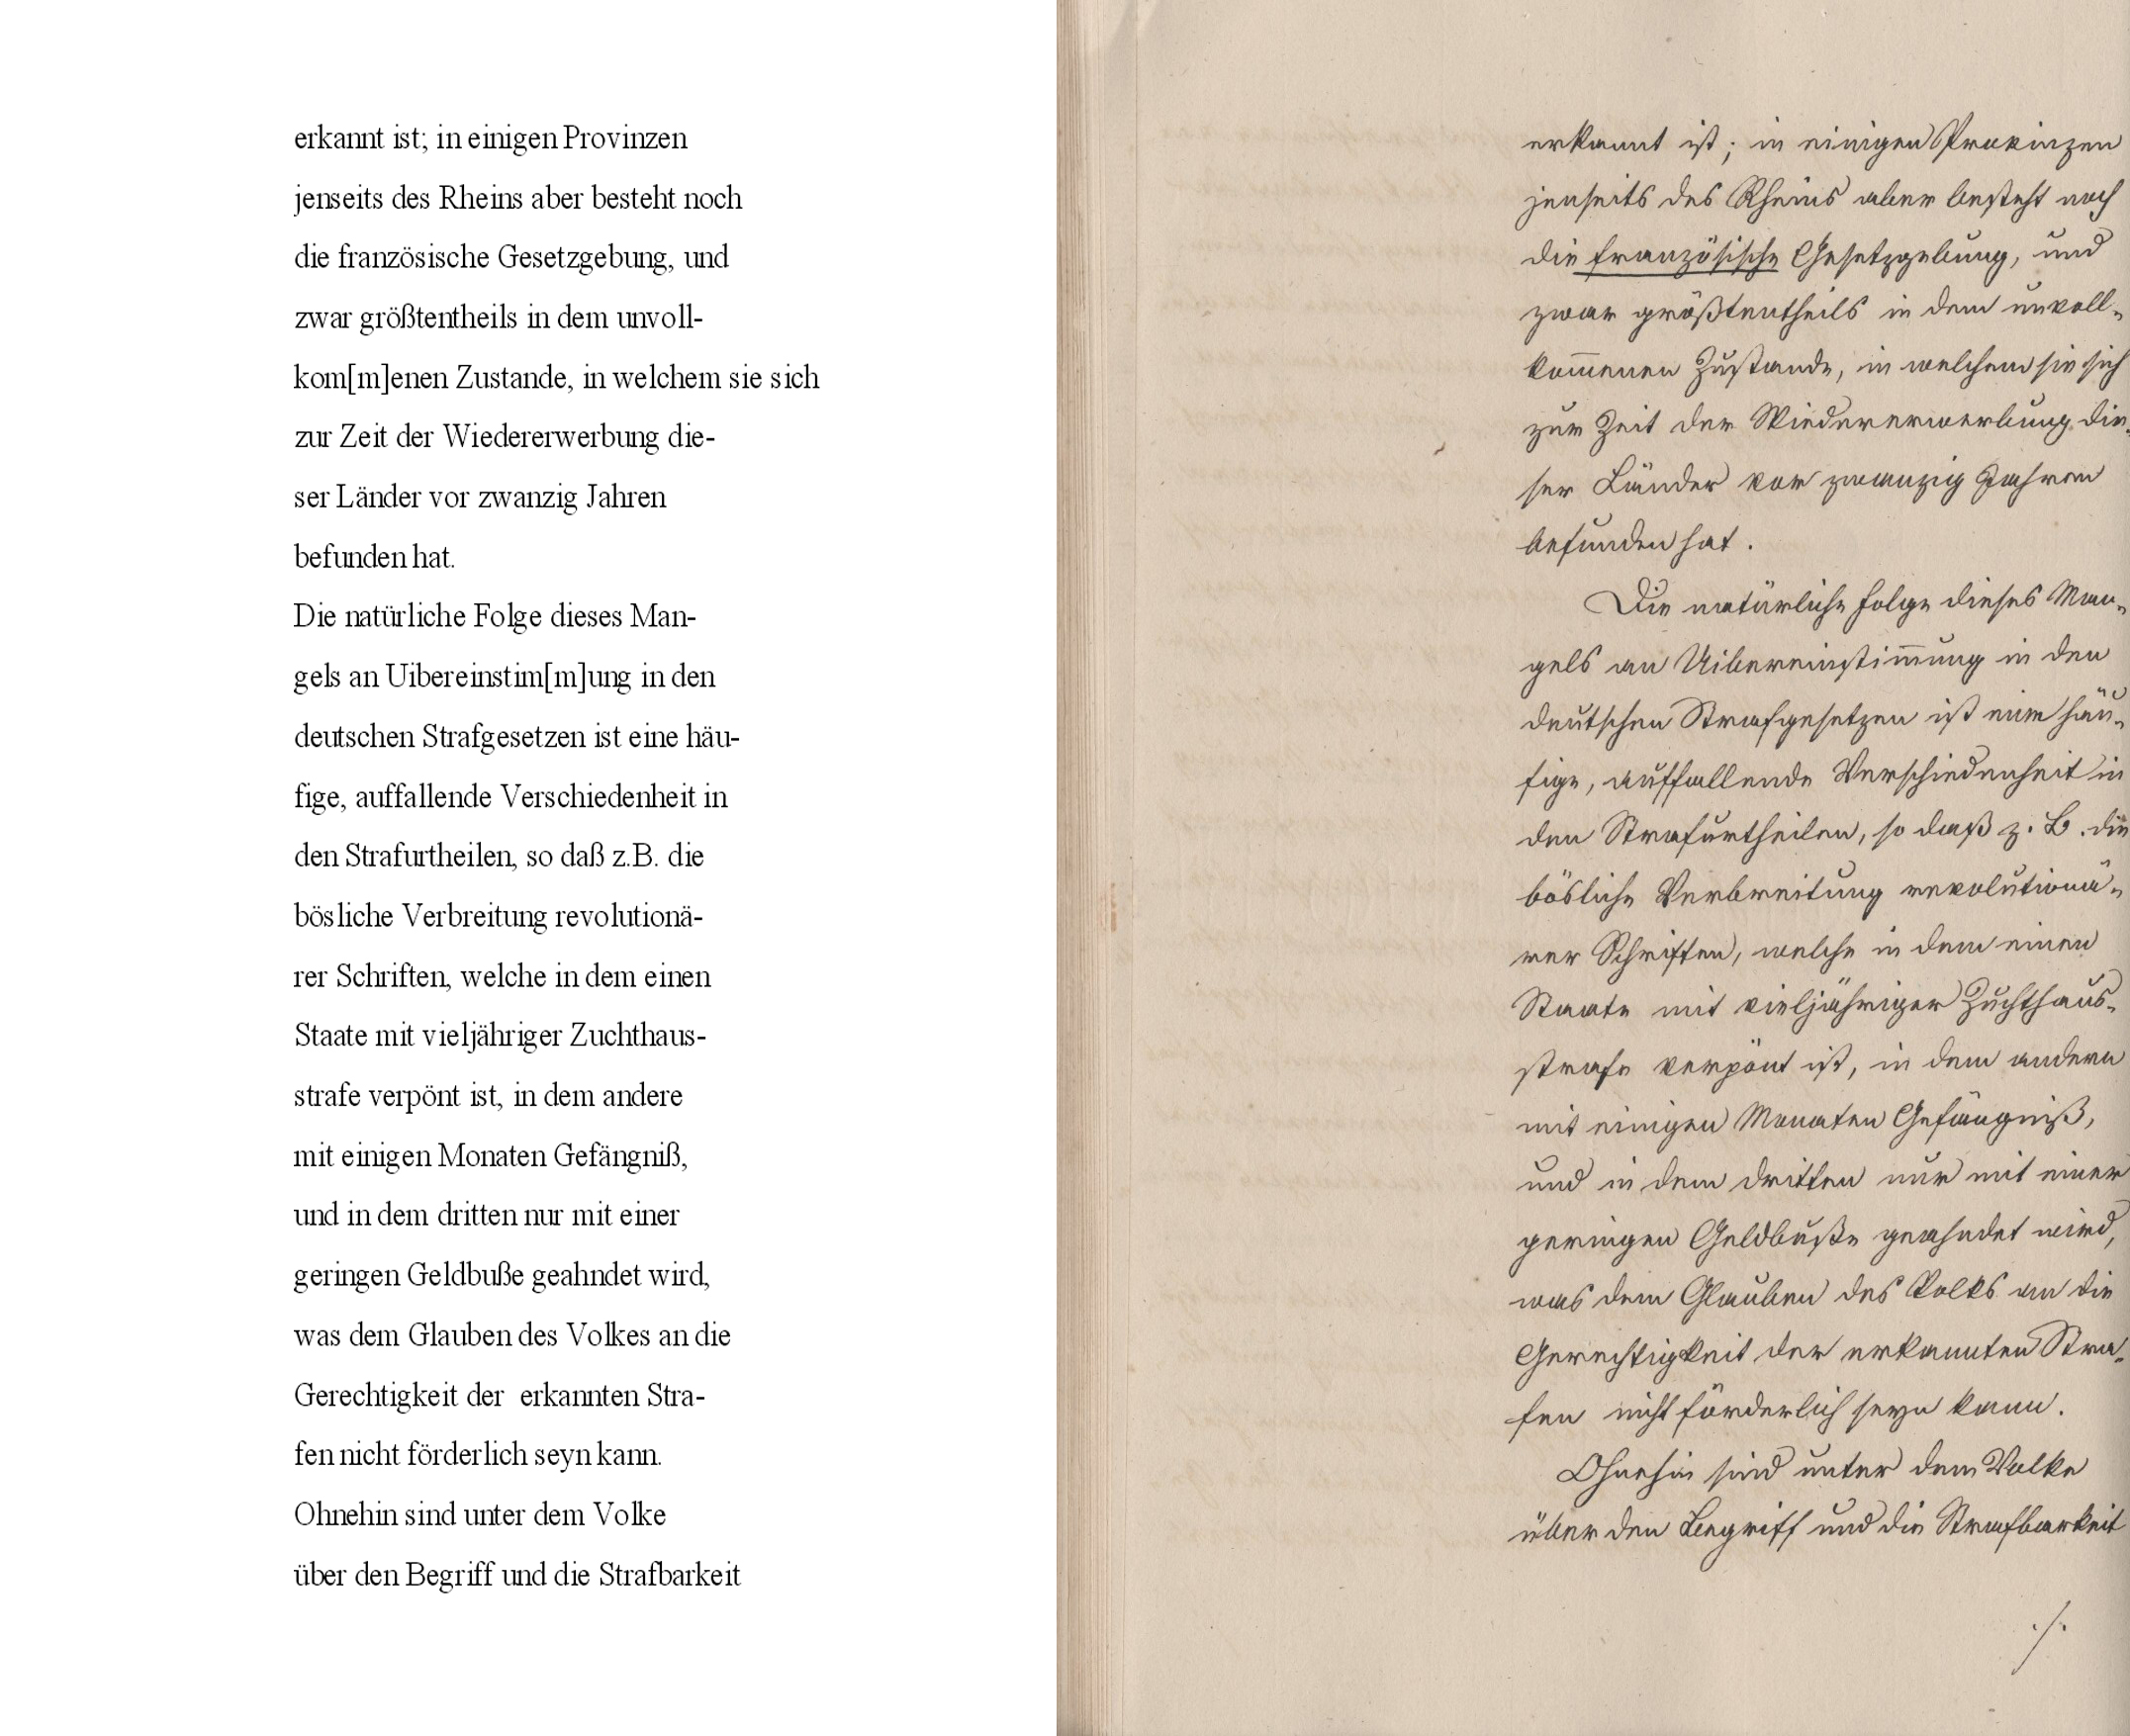 erkannt ist; in einigen Provinzen
jenseits des Rheins aber besteht noch
die französische Gesetzgebung, und
zwar größtentheils in dem unvoll-
kom[m]enen Zustande, in welchem sie sich
zur Zeit der Wiedererwerbung die-
ser Länder vor zwanzig Jahren
befunden hat.
Die natürliche Folge dieses Man-
gels an Uibereinstim[m]ung in den
deutschen Strafgesetzen ist eine häu-
fige, auffallende Verschiedenheit in
den Strafurtheilen, so daß z.B. die
bösliche Verbreitung revolutionä-
rer Schriften, welche in dem einen
Staate mit vieljähriger Zuchthaus-
strafe verpönt ist, in dem andere
mit einigen Monaten Gefängniß,
und in dem dritten nur mit einer
geringen Geldbuße geahndet wird,
was dem Glauben des Volkes an die
Gerechtigkeit der erkannten Stra-
fen nicht förderlich seyn kann.
Ohnehin sind unter dem Volke
über den Begriff und die Strafbarkeit
erkannt ist; in einigen Provinzen
jenseits des Rheins aber besteht noch
die französische Gesetzgebung, und
zwar größtentheils in dem unvoll-
kom̅enen Zustande, in welchem sie sich
zur Zeit der Wiedererwerbung die-
ser Länder vor zwanzig Jahren
befunden hat.
Die natürliche Folge dieses Man-
gels an Uibereinstim̅ung in den
deutschen Strafgesetzen ist eine häu-
fige, auffallende Verschiedenheit in
den Strafurtheilen, so daß z. B. die
bösliche Verbreitung revolutionä-
rer Schriften, welche in dem einen
Staate mit vieljähriger Zuchthaus-
strafe verpönt ist, in dem andern
mit einigen Monaten Gefängniß,
und in dem dritten nur mit einer
geringen Geldbuße geahndet wird,
was dem Glauben des Volks an die
Gerechtigkeit der erkannten Stra-
fen nicht förderlich seyn kann.
Ohnehin sind unter dem Volke
über den Begriff und die Strafbarkeit
./.